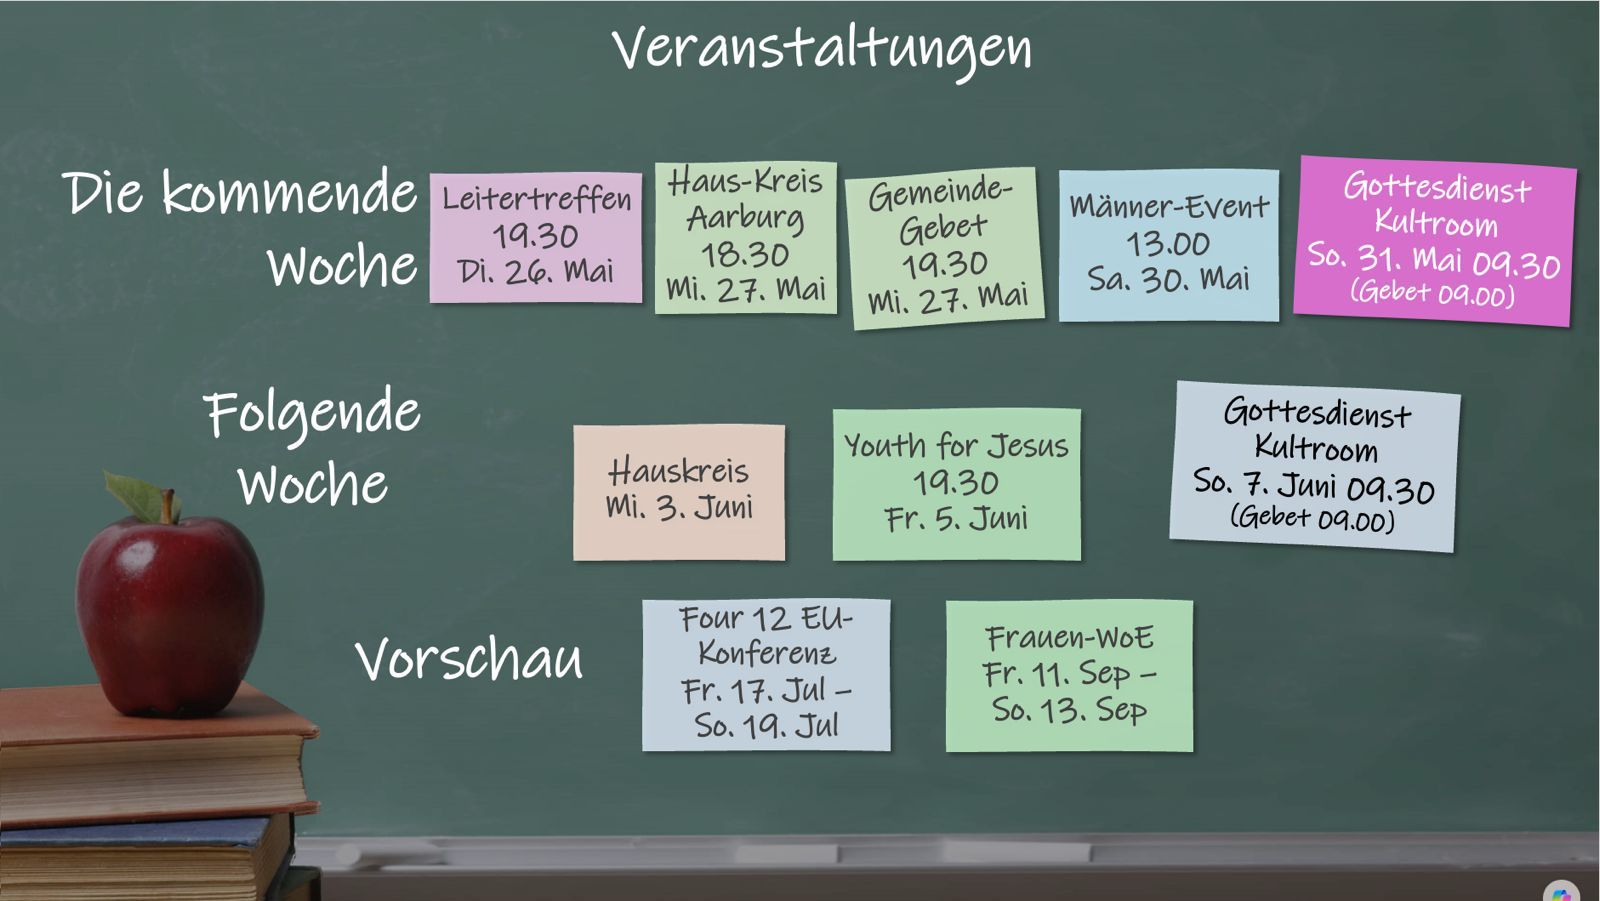 Veranstaltungen
Die kommende
Woche
Leitertreffen
19.30
Di. 26. Mai
Haus-Kreis
Aarburg
18.30
Mi. 27. Mai
Gemeinde-
Gebet
19.30
Mi. 27. Mai
Männer-Event
13.00
Sa. 30. Mai
Gottesdienst
Kultroom
So. 31. Mai 09.30
(Gebet 09.00)
Folgende
Woche
Hauskreis
Mi. 3. Juni
Youth for Jesus
19.30
Fr. 5. Juni
Gottesdienst
Kultroom
So. 7. Juni 09.30
(Gebet 09.00)
Vorschau
Four 12 EU-
Konferenz
Fr. 17. Jul –
So. 19. Jul
Frauen-WoE
Fr. 11. Sep –
So. 13. Sep